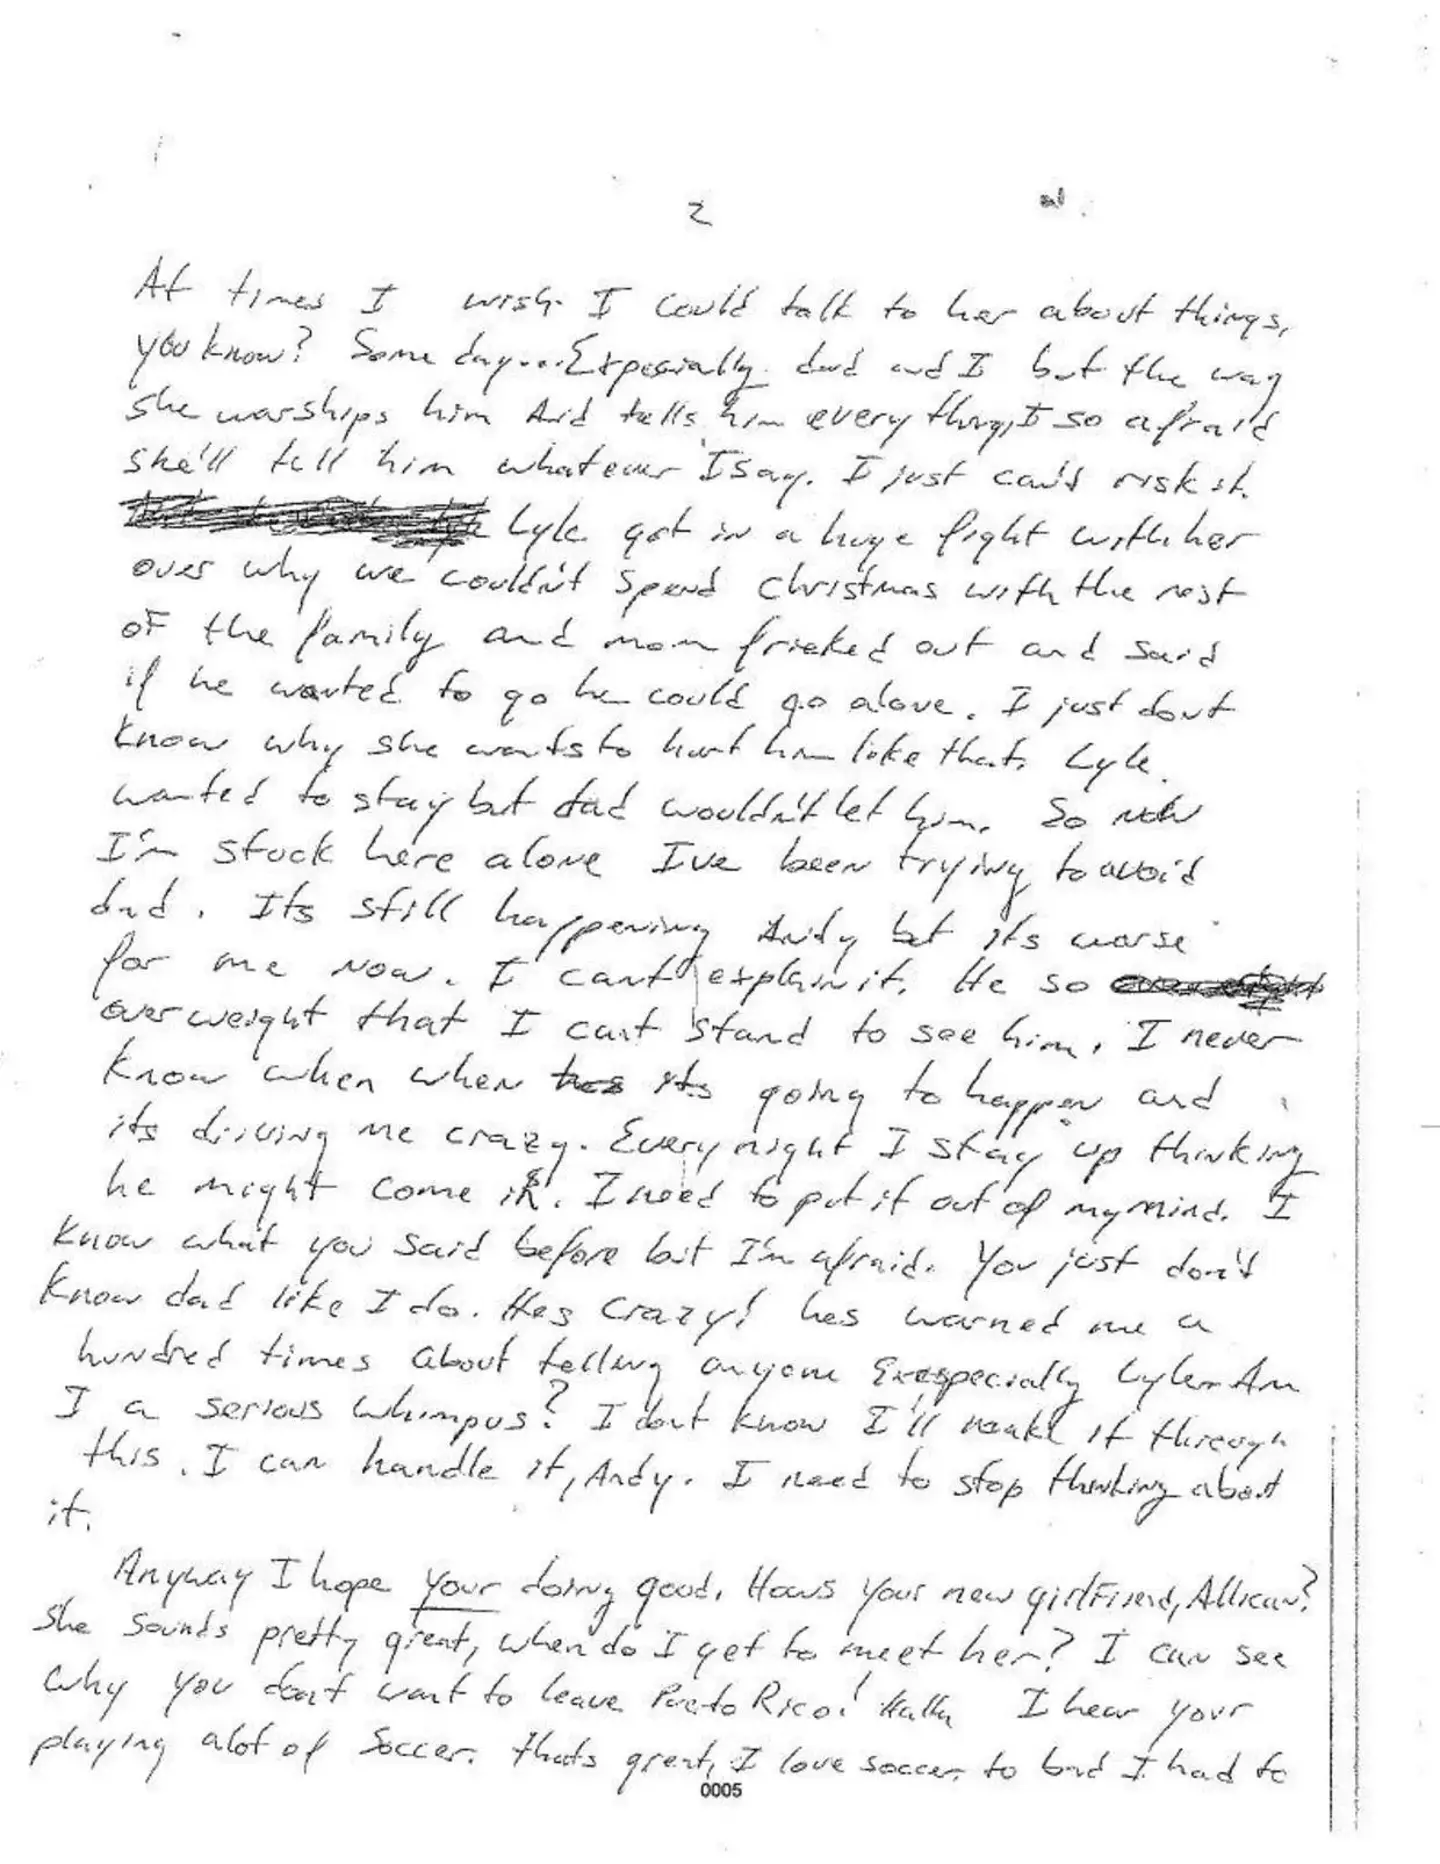 2
At times I wish I could talk to her about things,
you know? Some day... Expesially dad and I but the way
she warships him and tells him every thing, I so afraid
she'll tell him whatever I say. I just can't risk it.
Lyle got in a huge fight with her
over why we couldn't spend Christmas with the rest
of the family and mom frieked out and said
if he wanted to go he could go alone. I just dont
know why she wants to hurt him like that. Lyle
wanted to stay but dad wouldn't let him. So now
I'm stuck here alone Ive been trying to avoid
dad. Its still happening Andy but its worse
for me now. I cant explain it. He so
overweight that I cant stand to see him. I never
know when when its going to happen and
its driving me crazy. Every night I stay up thinking
he might come in. I need to put it out of my mind. I
know what you said before but I'm afraid. You just don't
know dad like I do. Hes crazy! hes warned me a
hundred times about telling anyone Exespecially Lyle. Am
I a serious whimpus? I dont know I'll make it through
this. I can handle it, Andy. I need to stop thinking about
it.
Anyway I hope your doing good. Hows your new girlfriend,
She sounds pretty great, when do I get to meet her? I can see
why you dont want to leave Puerto Rico! I hear your
playing alot of Soccer. thats great, I love soccer. to bad I had to
0005